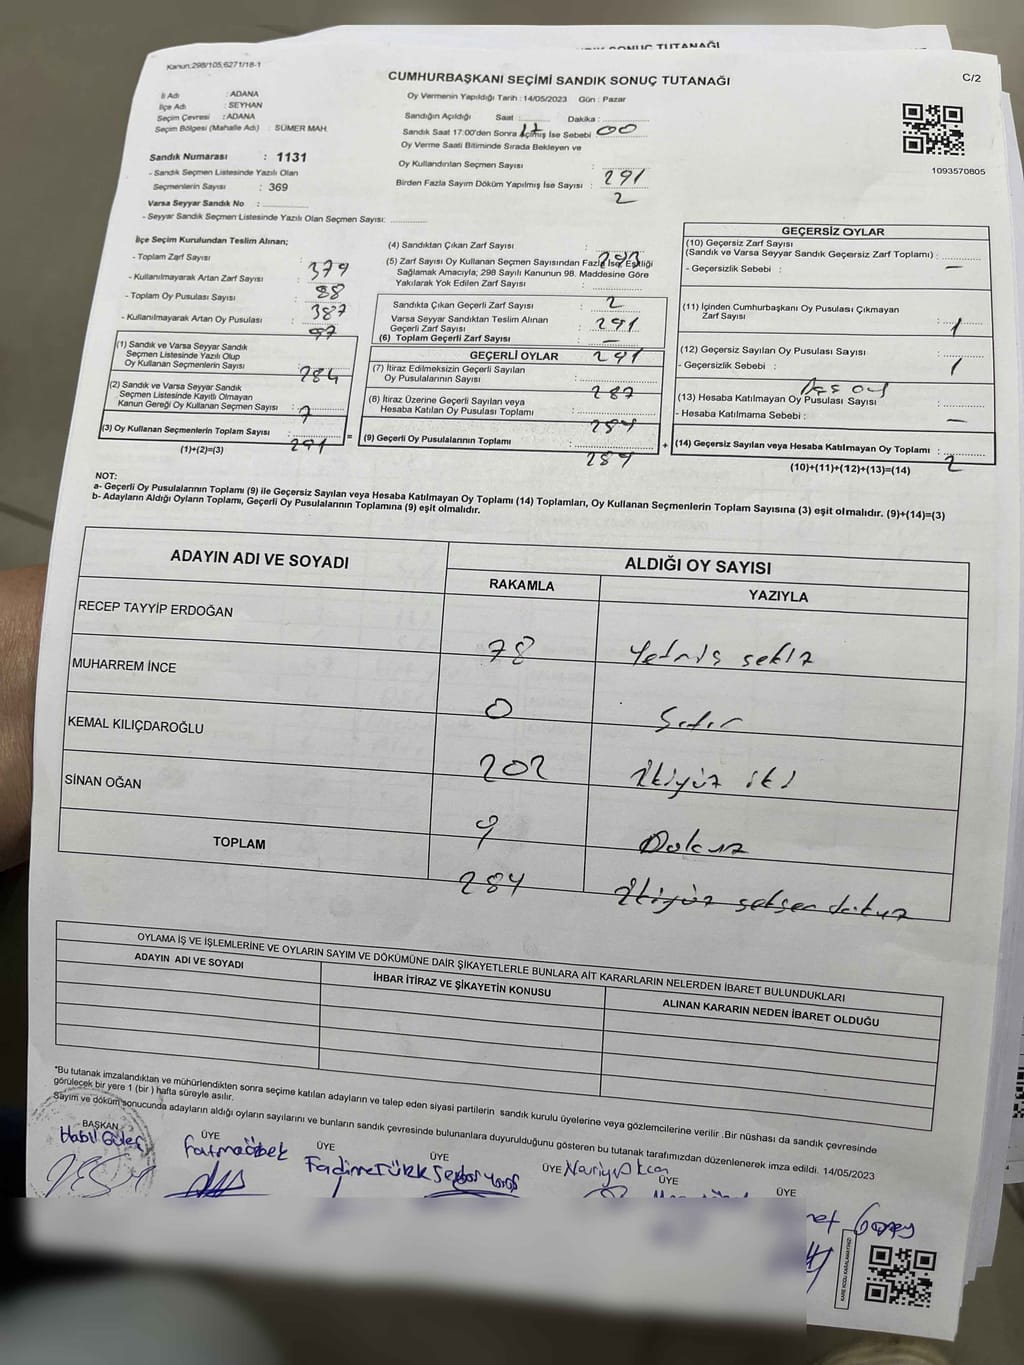 SONUÇ TUTANAĞI
Kanun;298/105;6271/18-1
CUMHURBAŞKANI SEÇİMİ SANDIK SONUÇ TUTANAĞI
C/2
İl Adı : ADANA
İlçe Adı : SEYHAN
Seçim Çevresi : ADANA
Seçim Bölgesi (Mahalle Adı) : SÜMER MAH.
Oy Vermenin Yapıldığı Tarih : 14/05/2023 Gün : Pazar
Sandığın Açıldığı Saat : 17 Dakika : 00
Sandık Saat 17:00'den Sonra Açılmış İse Sebebi
Oy Verme Saati Bitiminde Sırada Bekleyen ve
Oy Kullandırılan Seçmen Sayısı : 291
Birden Fazla Sayım Döküm Yapılmış İse Sayısı : 2
1093570805
Sandık Numarası : 1131
- Sandık Seçmen Listesinde Yazılı Olan
Seçmenlerin Sayısı : 369
Varsa Seyyar Sandık No :
- Seyyar Sandık Seçmen Listesinde Yazılı Olan Seçmen Sayısı:
İlçe Seçim Kurulundan Teslim Alınan;
- Toplam Zarf Sayısı : 379
- Kullanılmayarak Artan Zarf Sayısı : 88
- Toplam Oy Pusulası Sayısı : 387
- Kullanılmayarak Artan Oy Pusulası : 97
(1) Sandık ve Varsa Seyyar Sandık
Seçmen Listesinde Yazılı Olup
Oy Kullanan Seçmenlerin Sayısı : 284
(2) Sandık ve Varsa Seyyar Sandık
Seçmen Listesinde Kayıtlı Olmayan
Kanun Gereği Oy Kullanan Seçmen Sayısı : 7
(3) Oy Kullanan Seçmenlerin Toplam Sayısı : 291
(1)+(2)=(3)
(4) Sandıktan Çıkan Zarf Sayısı : 293
(5) Zarf Sayısı Oy Kullanan Seçmen Sayısından Fazla İse, Eşitliği
Sağlamak Amacıyla; 298 Sayılı Kanunun 98. Maddesine Göre
Yakılarak Yok Edilen Zarf Sayısı : 2
Sandıkta Çıkan Geçerli Zarf Sayısı : 291
Varsa Seyyar Sandıktan Teslim Alınan
Geçerli Zarf Sayısı : —
(6) Toplam Geçerli Zarf Sayısı : 291
GEÇERLİ OYLAR
(7) İtiraz Edilmeksizin Geçerli Sayılan
Oy Pusulalarının Sayısı : 287
(8) İtiraz Üzerine Geçerli Sayılan veya
Hesaba Katılan Oy Pusulası Toplamı :
= (9) Geçerli Oy Pusulalarının Toplamı : 289
GEÇERSİZ OYLAR
(10) Geçersiz Zarf Sayısı
(Sandık ve Varsa Seyyar Sandık Geçersiz Zarf Toplamı) : —
- Geçersizlik Sebebi :
(11) İçinden Cumhurbaşkanı Oy Pusulası Çıkmayan
Zarf Sayısı : 1
(12) Geçersiz Sayılan Oy Pusulası Sayısı : 1
- Geçersizlik Sebebi :
(13) Hesaba Katılmayan Oy Pusulası Sayısı : —
- Hesaba Katılmama Sebebi :
+ (14) Geçersiz Sayılan veya Hesaba Katılmayan Oy Toplamı : 2
(10)+(11)+(12)+(13)=(14)
NOT:
a- Geçerli Oy Pusulalarının Toplamı (9) ile Geçersiz Sayılan veya Hesaba Katılmayan Oy Toplamı (14) Toplamları, Oy Kullanan Seçmenlerin Toplam Sayısına (3) eşit olmalıdır. (9)+(14)=(3)
b- Adayların Aldığı Oyların Toplamı, Geçerli Oy Pusulalarının Toplamına (9) eşit olmalıdır.
ADAYIN ADI VE SOYADI
ALDIĞI OY SAYISI
RAKAMLA YAZIYLA
RECEP TAYYİP ERDOĞAN 78 Yetmiş sekiz
MUHARREM İNCE 0 Sıfır
KEMAL KILIÇDAROĞLU 202 İkiyüz iki
SİNAN OĞAN 9 Dokuz
TOPLAM 289 İkiyüz seksen dokuz
OYLAMA İŞ VE İŞLEMLERİNE VE OYLARIN SAYIM VE DÖKÜMÜNE DAİR ŞİKAYETLERLE BUNLARA AİT KARARLARIN NELERDEN İBARET BULUNDUKLARI
ADAYIN ADI VE SOYADI İHBAR İTİRAZ VE ŞİKAYETİN KONUSU ALINAN KARARIN NEDEN İBARET OLDUĞU
*Bu tutanak imzalandıktan ve mühürlendikten sonra seçime katılan adayların ve talep eden siyasi partilerin sandık kurulu üyelerine veya gözlemcilerine verilir .Bir nüshası da sandık çevresinde
görülecek bir yere 1 (bir ) hafta süreyle asılır.
Sayım ve döküm sonucunda adayların aldığı oyların sayılarını ve bunların sandık çevresinde bulunanlara duyurulduğunu gösteren bu tutanak tarafımızdan düzenlenerek imza edildi. 14/05/2023
BAŞKAN ÜYE ÜYE ÜYE ÜYE ÜYE ÜYE
Habil Güleç Fatma Özbek Fadime Türk
KARE KODU KARALAMAYINIZ!